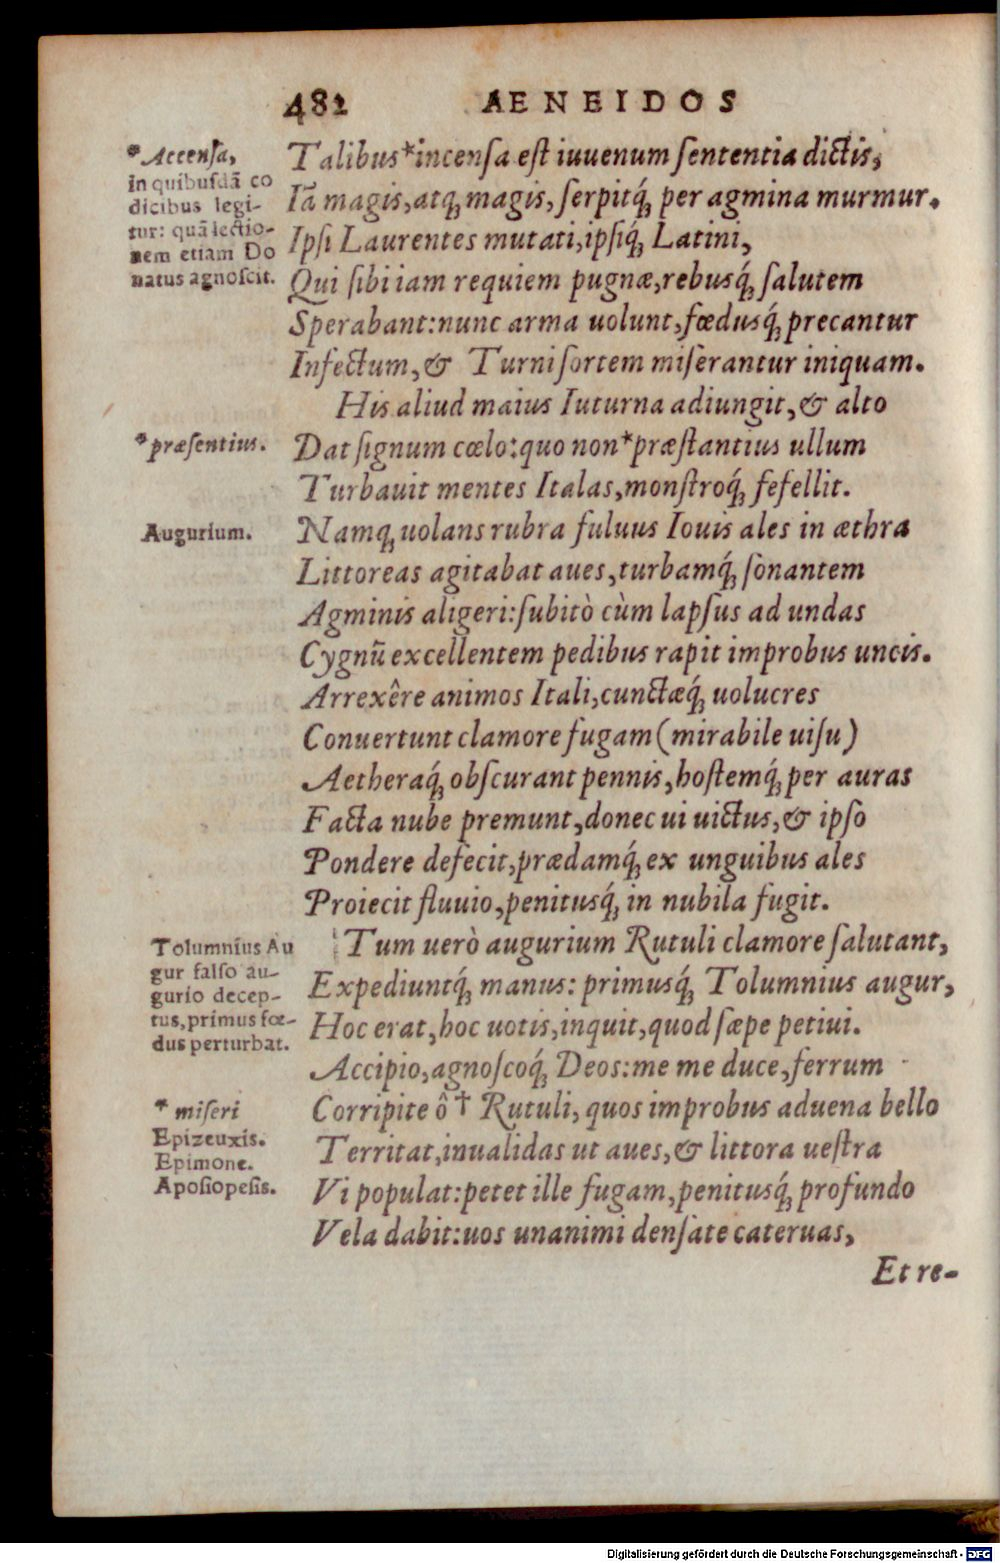 482 AENEIDOS
* Accensa,
in quibusdā co
dicibus legi-
tur: quā lectio-
nem etiam Do
natus agnoscit.
Talibus*incensa est iuuenum sententia dictis,
Iā magis, atq; magis, serpitq́; per agmina murmur.
Ipsi Laurentes mutati, ipsiq́; Latini,
Qui sibi iam requiem pugnæ, rebusq́; salutem
Sperabant: nunc arma uolunt, fœdusq́; precantur
Infectum, & Turni sortem miserantur iniquam.
His aliud maius Iuturna adiungit, & alto
* præsentius.
Dat signum cœlo: quo non*præstantius ullum
Turbauit mentes Italas, monstroq́; fefellit.
Augurium.
Namq; uolans rubra fuluus Iouis ales in æthra
Littoreas agitabat aues, turbamq́; sonantem
Agminis aligeri: subitò cùm lapsus ad undas
Cygnū excellentem pedibus rapit improbus uncis.
Arrexêre animos Itali, cunctæq́; uolucres
Conuertunt clamore fugam (mirabile uisu)
Aetheraq́; obscurant pennis, hostemq́; per auras
Facta nube premunt, donec ui uictus, & ipso
Pondere defecit, prædamq́; ex unguibus ales
Proiecit fluuio, penitusq́; in nubila fugit.
Tolumnius Au
gur falso au-
gurio decep-
tus, primus fœ-
dus perturbat.
Tum uerò augurium Rutuli clamore salutant,
Expediuntq́; manus: primusq́; Tolumnius augur,
Hoc erat, hoc uotis, inquit, quod sæpe petiui.
Accipio, agnoscoq́; Deos: me me duce, ferrum
* miseri
Epizeuxis.
Epimone.
Aposiopesis.
Corripite ô † Rutuli, quos improbus aduena bello
Territat, inualidas ut aues, & littora uestra
Vi populat: petet ille fugam, penitusq́; profundo
Vela dabit: uos unanimi densate cateruas,
Et re-
Digitalisierung gefördert durch die Deutsche Forschungsgemeinschaft - DFG